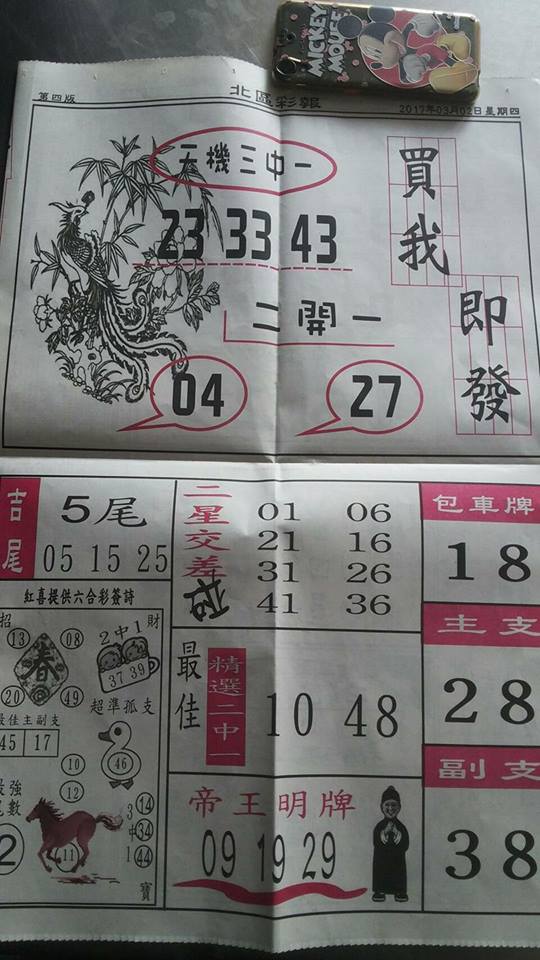 MICKEY
MOUSE
第四版
北區彩報
2017年03月02日星期四
天機三中一
23 33 43
二開一
04
27
買我
即發
吉尾
5尾
05 15 25
二星交差
01 06
21 16
31 26
41 36
包車牌
18
主支
28
副支
38
最佳
精選二中一
10 48
帝王明牌
09 19 29
紅喜提供六合彩簽詩
招
財
13
08
春
20
49
2中1
37 39
超準孤支
46
最佳主副支
45 17
10
12
11
最強
尾數
2
3中1
14
34
44
寶